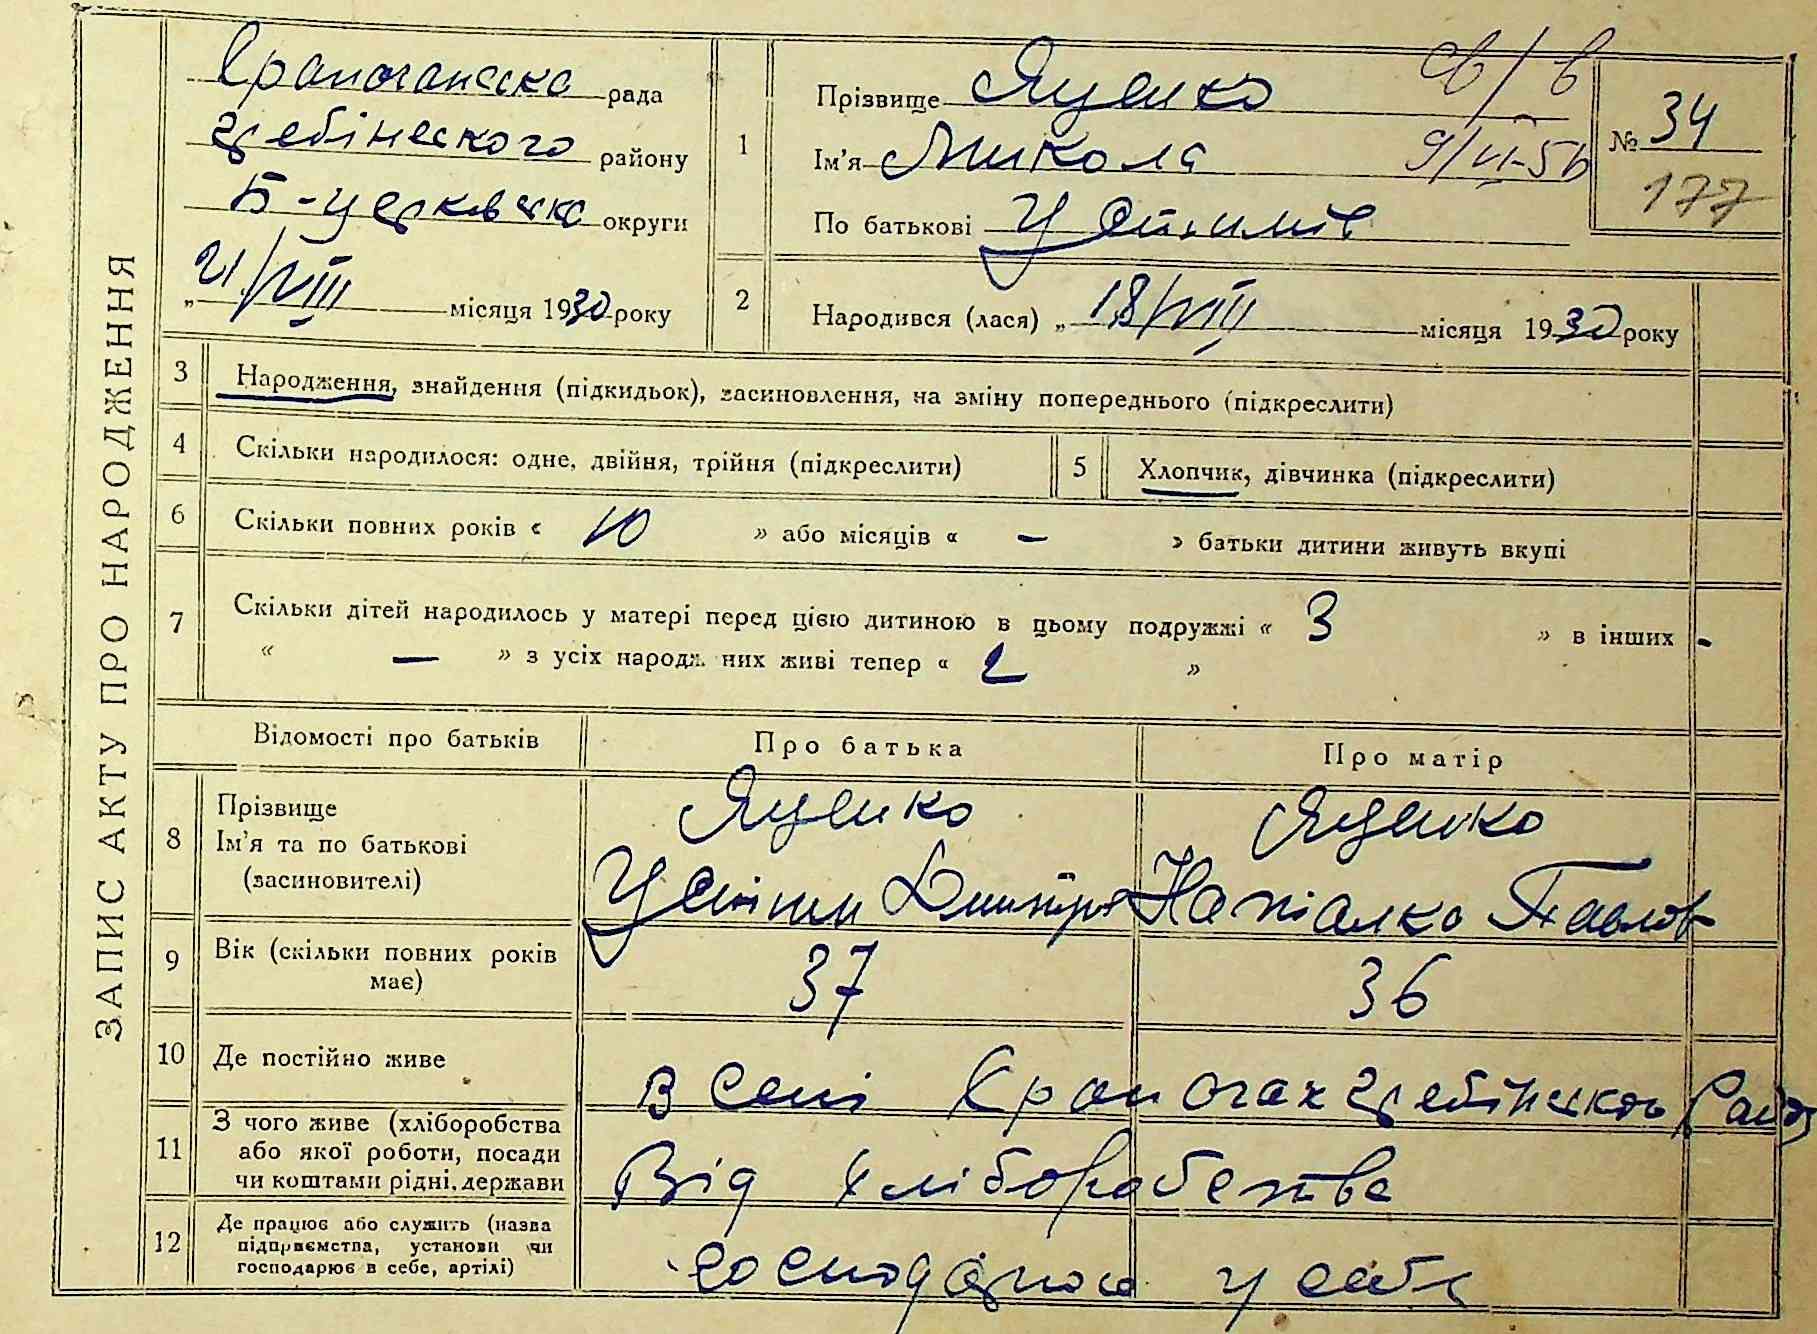 ЗАПИС АКТУ ПРО НАРОДЖЕННЯ
рада
Гребінського району
Б-Церквська округи
„ 21/VIII місяця 1930 року
1
Прізвище Яценко
Ім'я Микола
По батькові Устимів
св/в
9/VI-56
№ 34
177
2
Народився (лася) „ 18/VIII місяця 1930 року
3 Народження, знайдення (підкидьок), засиновлення, на зміну попереднього (підкреслити)
4 Скільки народилося: одне, двійня, трійня (підкреслити)
5 Хлопчик, дівчинка (підкреслити)
6 Скільки повних років « 10 » або місяців « – » батьки дитини живуть вкупі
7 Скільки дітей народилось у матері перед цією дитиною в цьому подружжі « 3 » в інших -
« — » з усіх народж. них живі тепер « 2 »
Відомості про батьків
Про батька
Про матір
8
Прізвище
Ім'я та по батькові
(засиновителі)
Яценко
Устим Дмитров
Яценко
Наталко Павлов
9
Вік (скільки повних років
має)
37
36
10 Де постійно живе
в селі гребінського Рай
11
З чого живе (хліборобства
або якої роботи, посади
чи коштами рідні, держави
Від хліборобства
12
Де працює або служить (назва
підприємства, установи чи
господарює в себе, артілі)
у себе